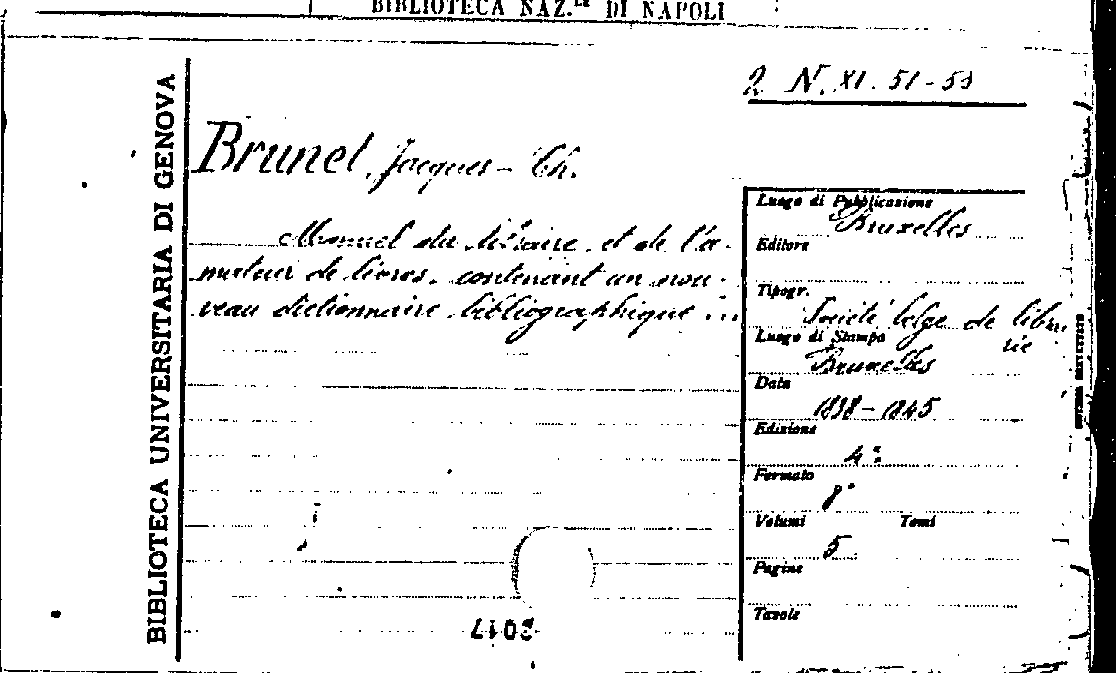 BIBLIOTECA NAZ.LE DI NAPOLI
BIBLIOTECA UNIVERSITARIA DI GENOVA
2 N. XI. 51-53
Brunet, Jacques-Ch.
Manuel du libraire et de l'a-
mateur de livres, contenant un nou-
veau dictionnaire bibliographique ...
Luogo di Pubblicazione
Bruxelles
Editore
Tipogr.
Société belge de librai
rie
Luogo di Stampa
Bruxelles
Data
1838-1845
Edizione
4ª
Formato
8°
Volumi Tomi
5
Pagine
Tavole